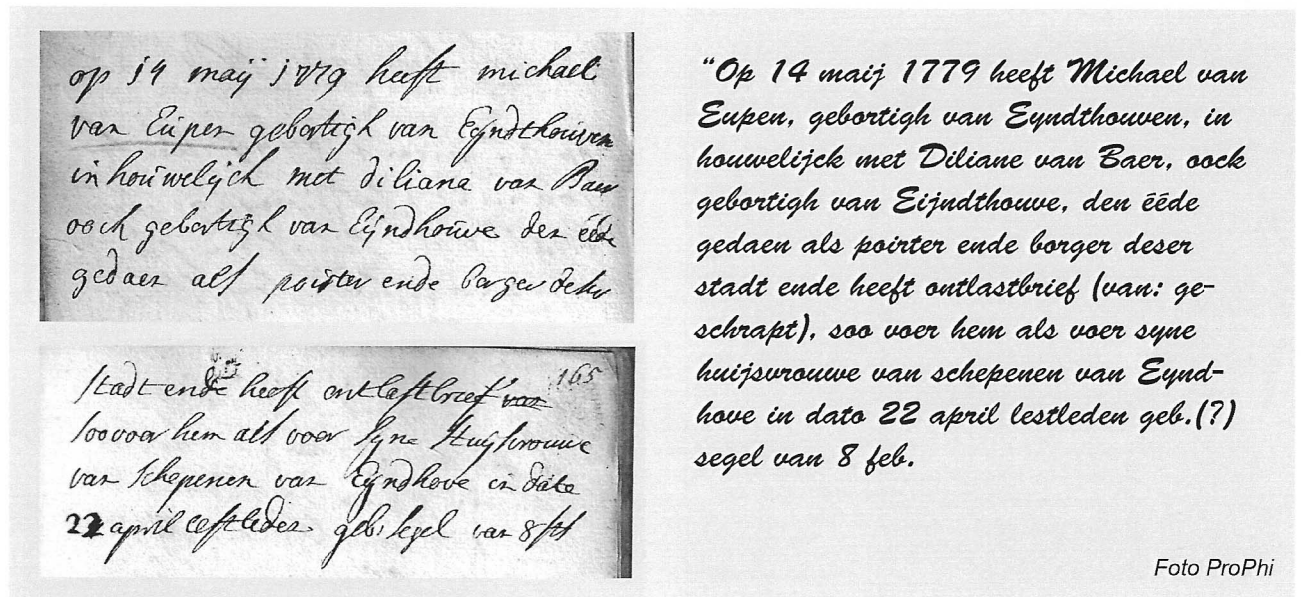 op 14 maij 1779 heeft michael
van Eupen gebortigh van Eyndthouven
in houwelijck met diliana van Baer
oock gebortigh van Eijndhouve den ééde
gedaen als poirter ende borger deser
165
stadt ende heeft ontlastbrief van
soo voor hem als voor syne Huijsvrouwe
van schepenen van Eyndhove in dato
22 april lestleden geb: segel van 8 st
“Op 14 maij 1779 heeft Michael van
Eupen, gebortigh van Eyndthouven, in
houwelijck met Diliane van Baer, oock
gebortigh van Eijndthouve, den ééde
gedaen als poirter ende borger deser
stadt ende heeft ontlastbrief (van: ge-
schrapt), soo voer hem als voer syne
huijsvrouwe van schepenen van Eynd-
hove in dato 22 april lestleden geb.(?)
segel van 8 feb.
Foto ProPhi